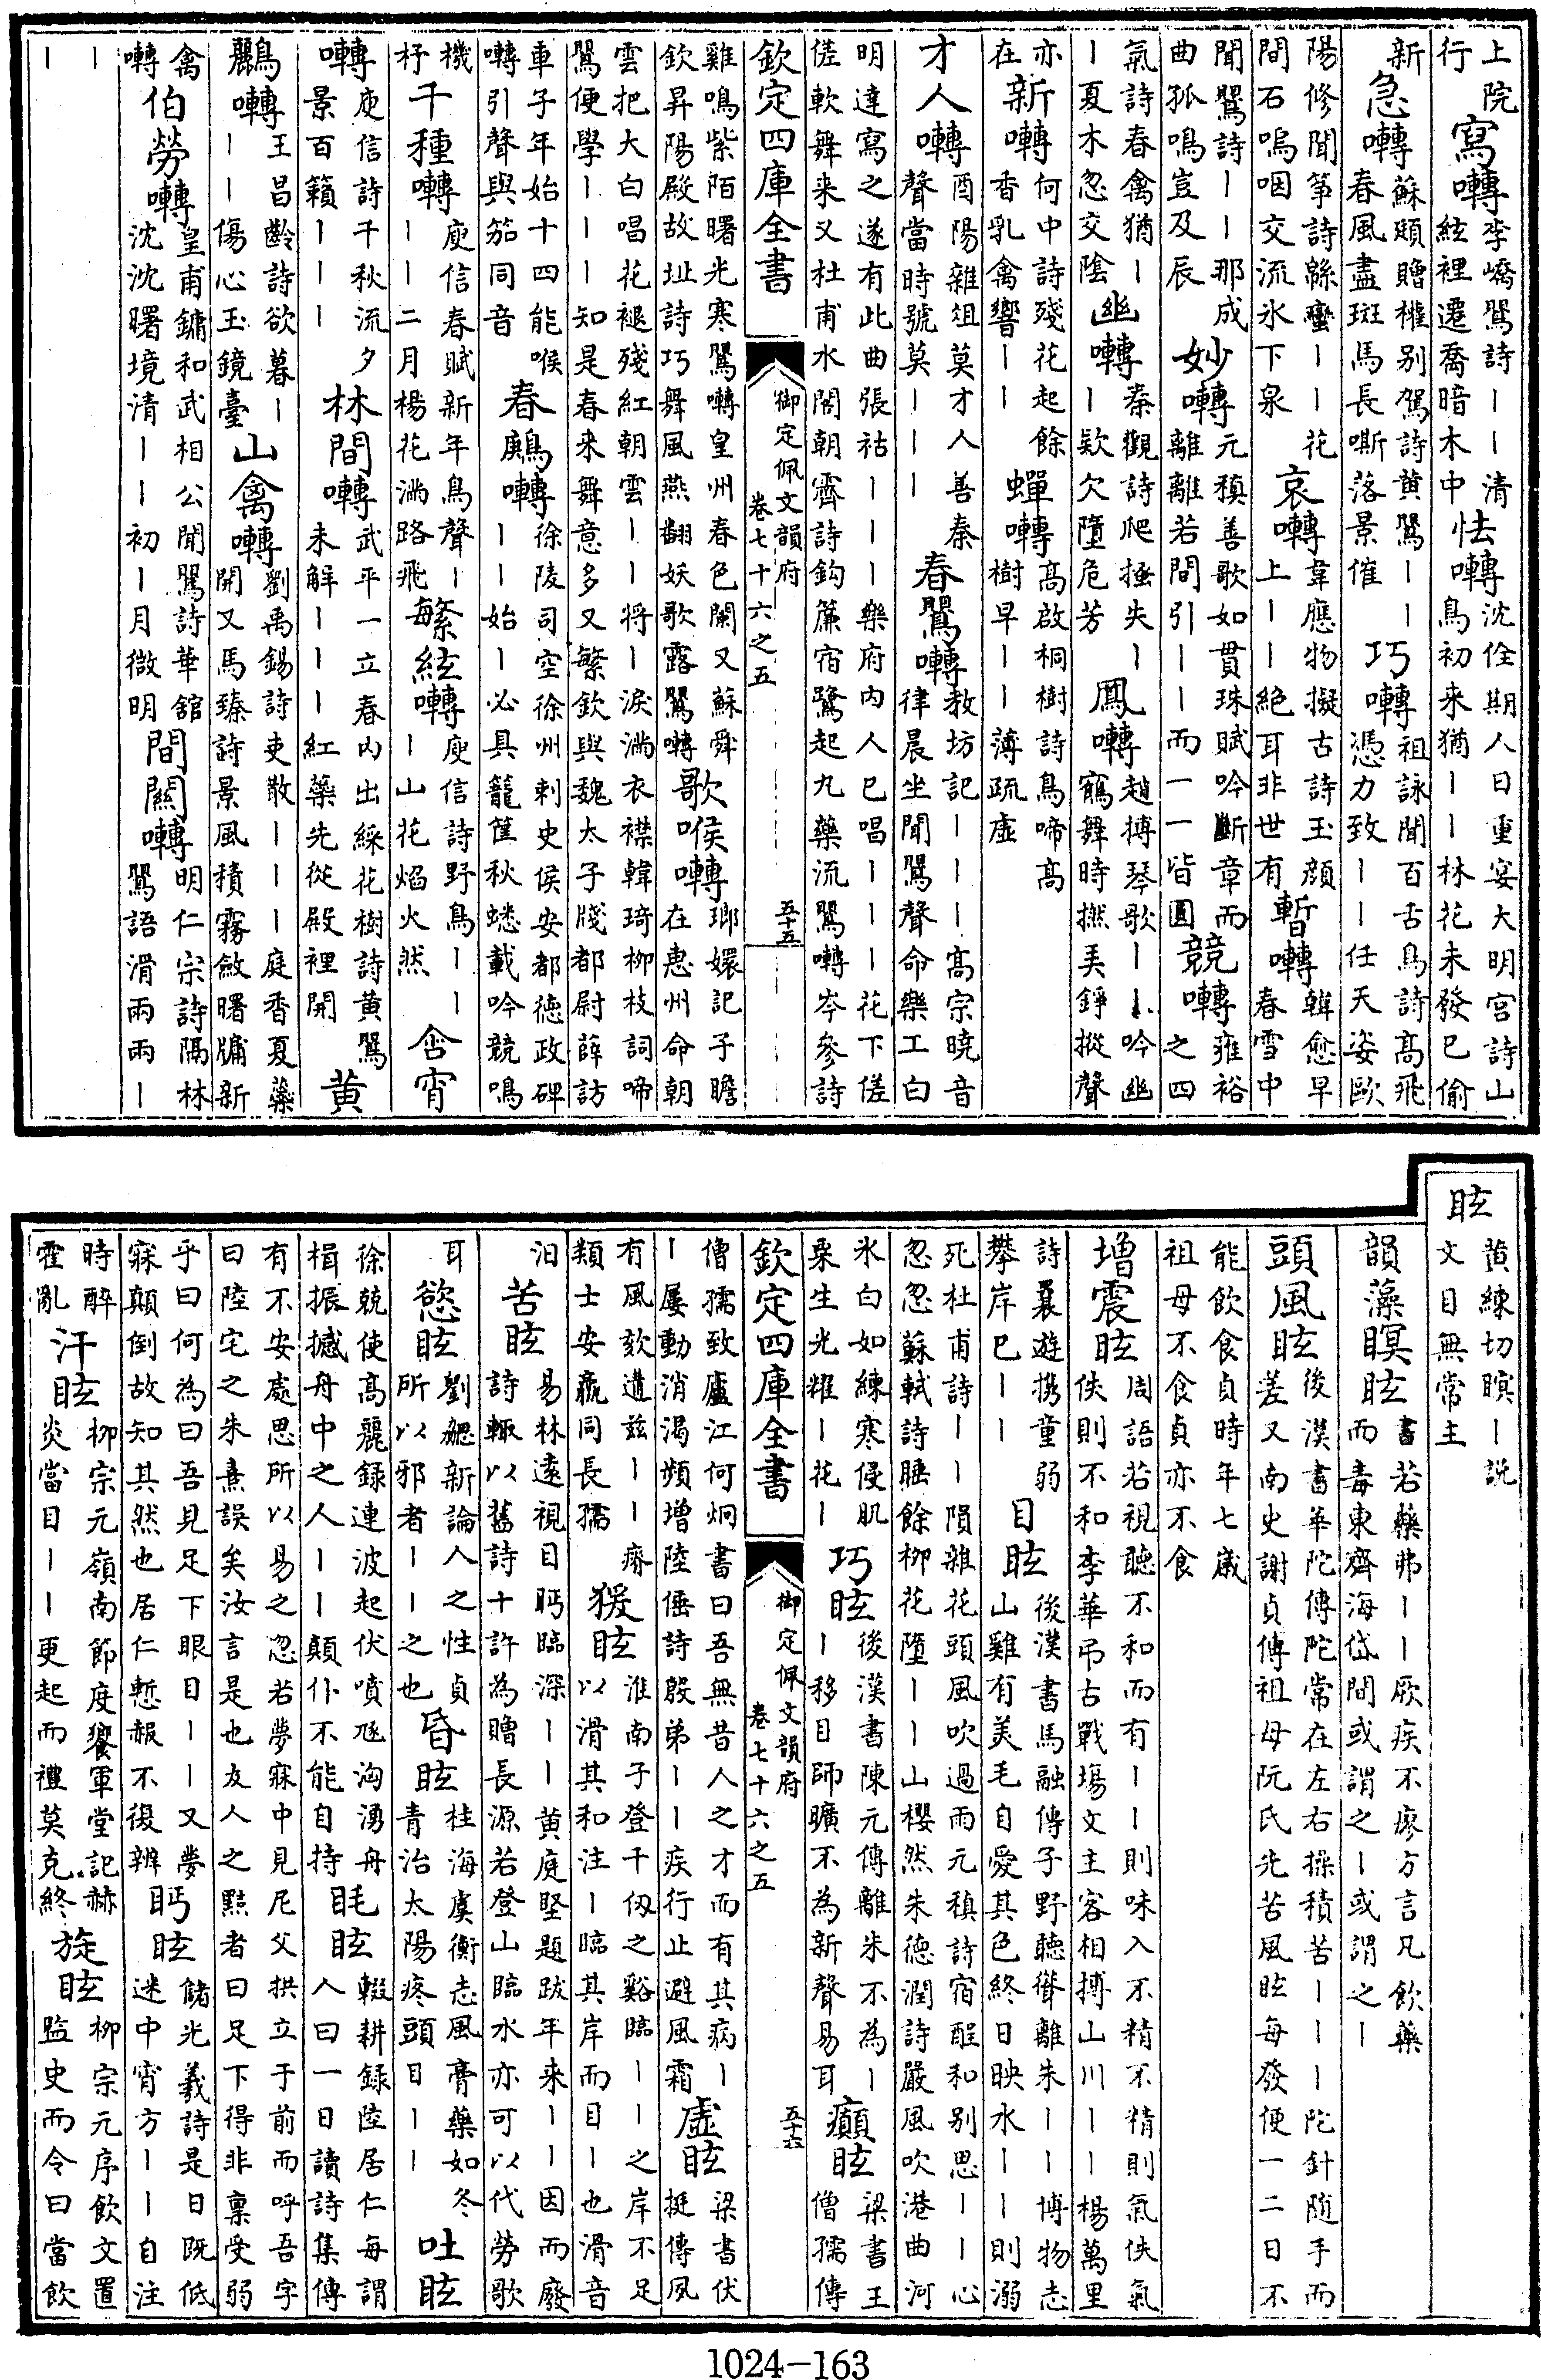 上院行寫囀李嶠鶯詩丨丨清絃裡遷喬暗木中怯囀沈佺期人日重宴大明宫詩山鳥初来猶丨丨林花未發已偷
新急囀蘇頲贈權别駕詩黄鶯丨丨春風盡斑馬長嘶落景催巧囀祖詠聞百舌鳥詩高飛憑力致丨丨任天姿歐
陽修聞箏詩緜蠻丨丨花間石嗚咽交流氷下泉哀囀韋應物擬古詩玉顔上丨丨絶耳非世有暫囀韓愈早春雪中
聞鶯詩丨丨那成曲孤鳴豈及辰妙囀元稹善歌如貫珠賦吟斷章而離離若間引丨丨而一一皆圓競囀雍裕之四
氣詩春禽猶丨丨夏木忽交陰幽囀秦觀詩爬搔失丨丨欵欠墮危芳鳳囀趙摶琴歌丨丨吟幽鶴舞時撚弄錚摐聲
亦在新囀何中詩殘花起餘香乳禽響丨丨蟬囀高啟桐樹詩鳥啼高樹早丨丨薄疏虚
才人囀酉陽雜俎莫才人善秦聲當時號莫丨丨丨春鶯囀教坊記丨丨丨高宗曉音律晨坐聞鶯聲命樂工白
明達寫之遂有此曲張祜丨丨丨樂府内人已唱丨丨丨花下傞傞軟舞来又杜甫水閣朝霽詩鈎簾宿鷺起九藥流鶯囀岑參詩
欽定四庫全書 御定佩文韻府 卷七十六之五 五十五
雞鳴紫陌曙光寒鶯囀皇州春色闌又蘇舜欽昇陽殿故址詩巧舞風燕翻妖歌露鶯囀歌喉囀瑯嬛記子瞻在惠州命朝
雲把大白唱花褪殘紅朝雲丨丨將丨淚滿衣襟韓琦柳枝詞啼鶯便學丨丨丨知是春来舞意多又繁欽與魏太子牋都尉薛訪
車子年始十四能喉囀引聲與笳同音春鷓囀徐陵司空徐州刺史侯安都徳政碑丨丨丨始丨必具籠筐秋蟋載吟競鳴
機杼千種囀庾信春賦新年鳥聲丨丨丨二月楊花滿路飛繁絃囀庾信詩野鳥丨丨丨山花焰火然含宵
囀庾信詩千秋流夕景百籟丨丨丨林間囀武平一立春内出綵花樹詩黄鶯未解丨丨丨紅藥先從殿裡開黄
鸝囀王昌齡詩欲暮丨丨丨傷心玉鏡臺山禽囀劉禹錫詩吏散丨丨丨庭香夏藥開又馬臻詩景風積霧斂曙牗新
禽囀伯勞囀皇甫鏞和武相公聞鶯詩華舘沈沈曙境清丨丨初丨月微明間關囀明仁宗詩隔林鶯語滑兩兩丨
丨丨
眩黄練切瞑丨説文目無常主
韻藻瞑眩書若藥弗丨丨厥疾不廖方言凡飲藥而毒東齊海岱間或謂之丨或謂之丨
頭風眩後漢書華陀傳陀常在左右操積苦丨丨丨陀針随手而差又南史謝貞傅祖母阮氏先苦風眩每發便一二日不
能飲食貞時年七歲祖母不食貞亦不食
増震眩周語若視聽不和而有丨丨則味入不精不精則氣佚氣佚則不和李華弔古戰場文主客相搏山川丨丨楊萬里
詩曩遊携童弱攀岸已丨丨目眩後漢書馬融傳子野聽聳離朱丨丨博物志山雞有美毛自愛其色終日映水丨丨則溺
死杜甫詩丨丨隕雜花頭風吹過雨元稹詩宿酲和别思丨丨心忽忽蘇軾詩睡餘柳花墮丨丨山櫻然朱徳潤詩嚴風吹港曲河
氷白如練寒侵肌栗生光耀丨花丨巧眩後漢書陳元傳離朱不為丨丨移目師曠不為新聲易耳癲眩梁書王僧孺傳
欽定四庫全書 御定佩文韻府 卷七十六之五 五十六
僧孺致廬江何炯書曰吾無昔人之才而有其病丨丨屢動消渴頻增陸倕詩殷弟丨丨疾行止避風霜虚眩梁書伏挺傳夙
有風欬遘兹丨丨瘠類士安羸同長孺猨眩淮南子登千仭之谿臨丨丨之岸不足以滑其和注丨臨其岸而目丨也滑音
汨苦眩易林遠視目眄臨深丨丨黄庭堅題跋年来丨丨因而廢詩輙以舊詩十許為贈長源若登山臨水亦可以代勞歌
耳慾眩劉勰新論人之性貞所以邪者丨丨之也昏眩桂海虞衡志風膏藥如冬青治太陽疼頭目丨丨吐眩
徐兢使高麗録連波起伏噴豗洶湧舟楫振撼舟中之人丨丨顛仆不能自持眊眩輟耕録陸居仁每謂人曰一日讀詩集傳
有不安處思所以易之忽若夢寐中見尼父拱立于前而呼吾字曰陸宅之朱熹誤矣汝言是也友人之黠者曰足下得非稟受弱
乎曰何為曰吾見足下眼目丨丨又夢寐顛倒故知其然也居仁慙赧不復辨眄眩儲光羲詩是日既低迷中宵方丨丨自注
時醉霍亂汗眩柳宗元嶺南節度饗軍堂記赫炎當目丨丨更起而禮莫克終旋眩柳宗元序飲文置監史而令曰當飲
1024-163